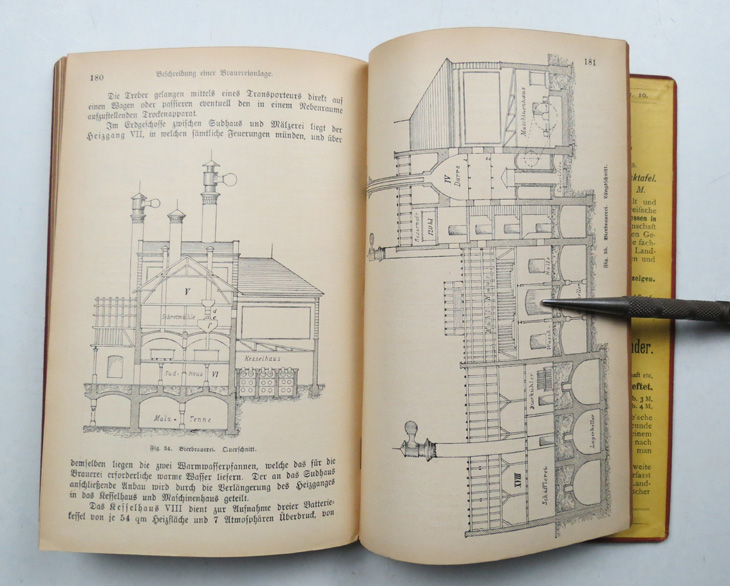 180
Beschreibung einer Brauereianlage.
Die Treber gelangen mittels eines Transporteurs direkt auf
einen Wagen oder passieren eventuell den in einem Nebenraume
aufzustellenden Trockenapparat.
Im Erdgeschosse zwischen Sudhaus und Mälzerei liegt der
Heizgang VII, in welchen sämtliche Feuerungen münden, und über
V
Schrotmühle
Sud-haus VI
Kesselhaus
Malz-Tenne
Fig. 34. Bierbrauerei. Querschnitt.
demselben liegen die zwei Warmwasserpfannen, welche das für die
Brauerei erforderliche warme Wasser liefern. Der an das Sudhaus
anschließende Anbau wird durch die Verlängerung des Heizganges
in das Kesselhaus und Maschinenhaus geteilt.
Das Kesselhaus VIII dient zur Aufnahme dreier Batterie-
kessel von je 54 qm Heizfläche und 7 Atmosphären Überdruck, von
181
Maschinenhaus
IV
Darre
Fig. 35. Bierbrauerei. Längsschnitt.
Lagerkeller
XVIII
Schäfflerei
10.
M.
lt und
ssen in
nschaft
en Ge-
fach-
Land-
en und
nzeigen.
nder.
haft etc.
eftet.
b. 3 M.
b. 4 M.
sche
reunde
einem
nach
man
weite
rfasst
Land-